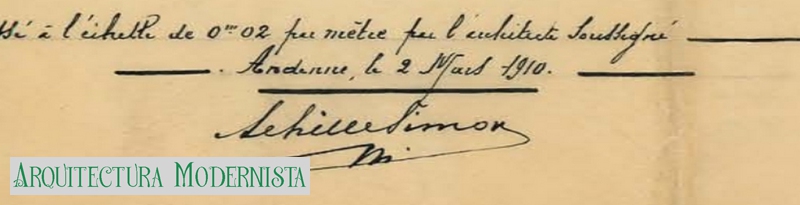 ssé à l'échelle de 0m02 par mètre par l'architecte soussigné
Andenne, le 2 Mars 1910.
Achille Simon
ARQUITECTURA MODERNISTA